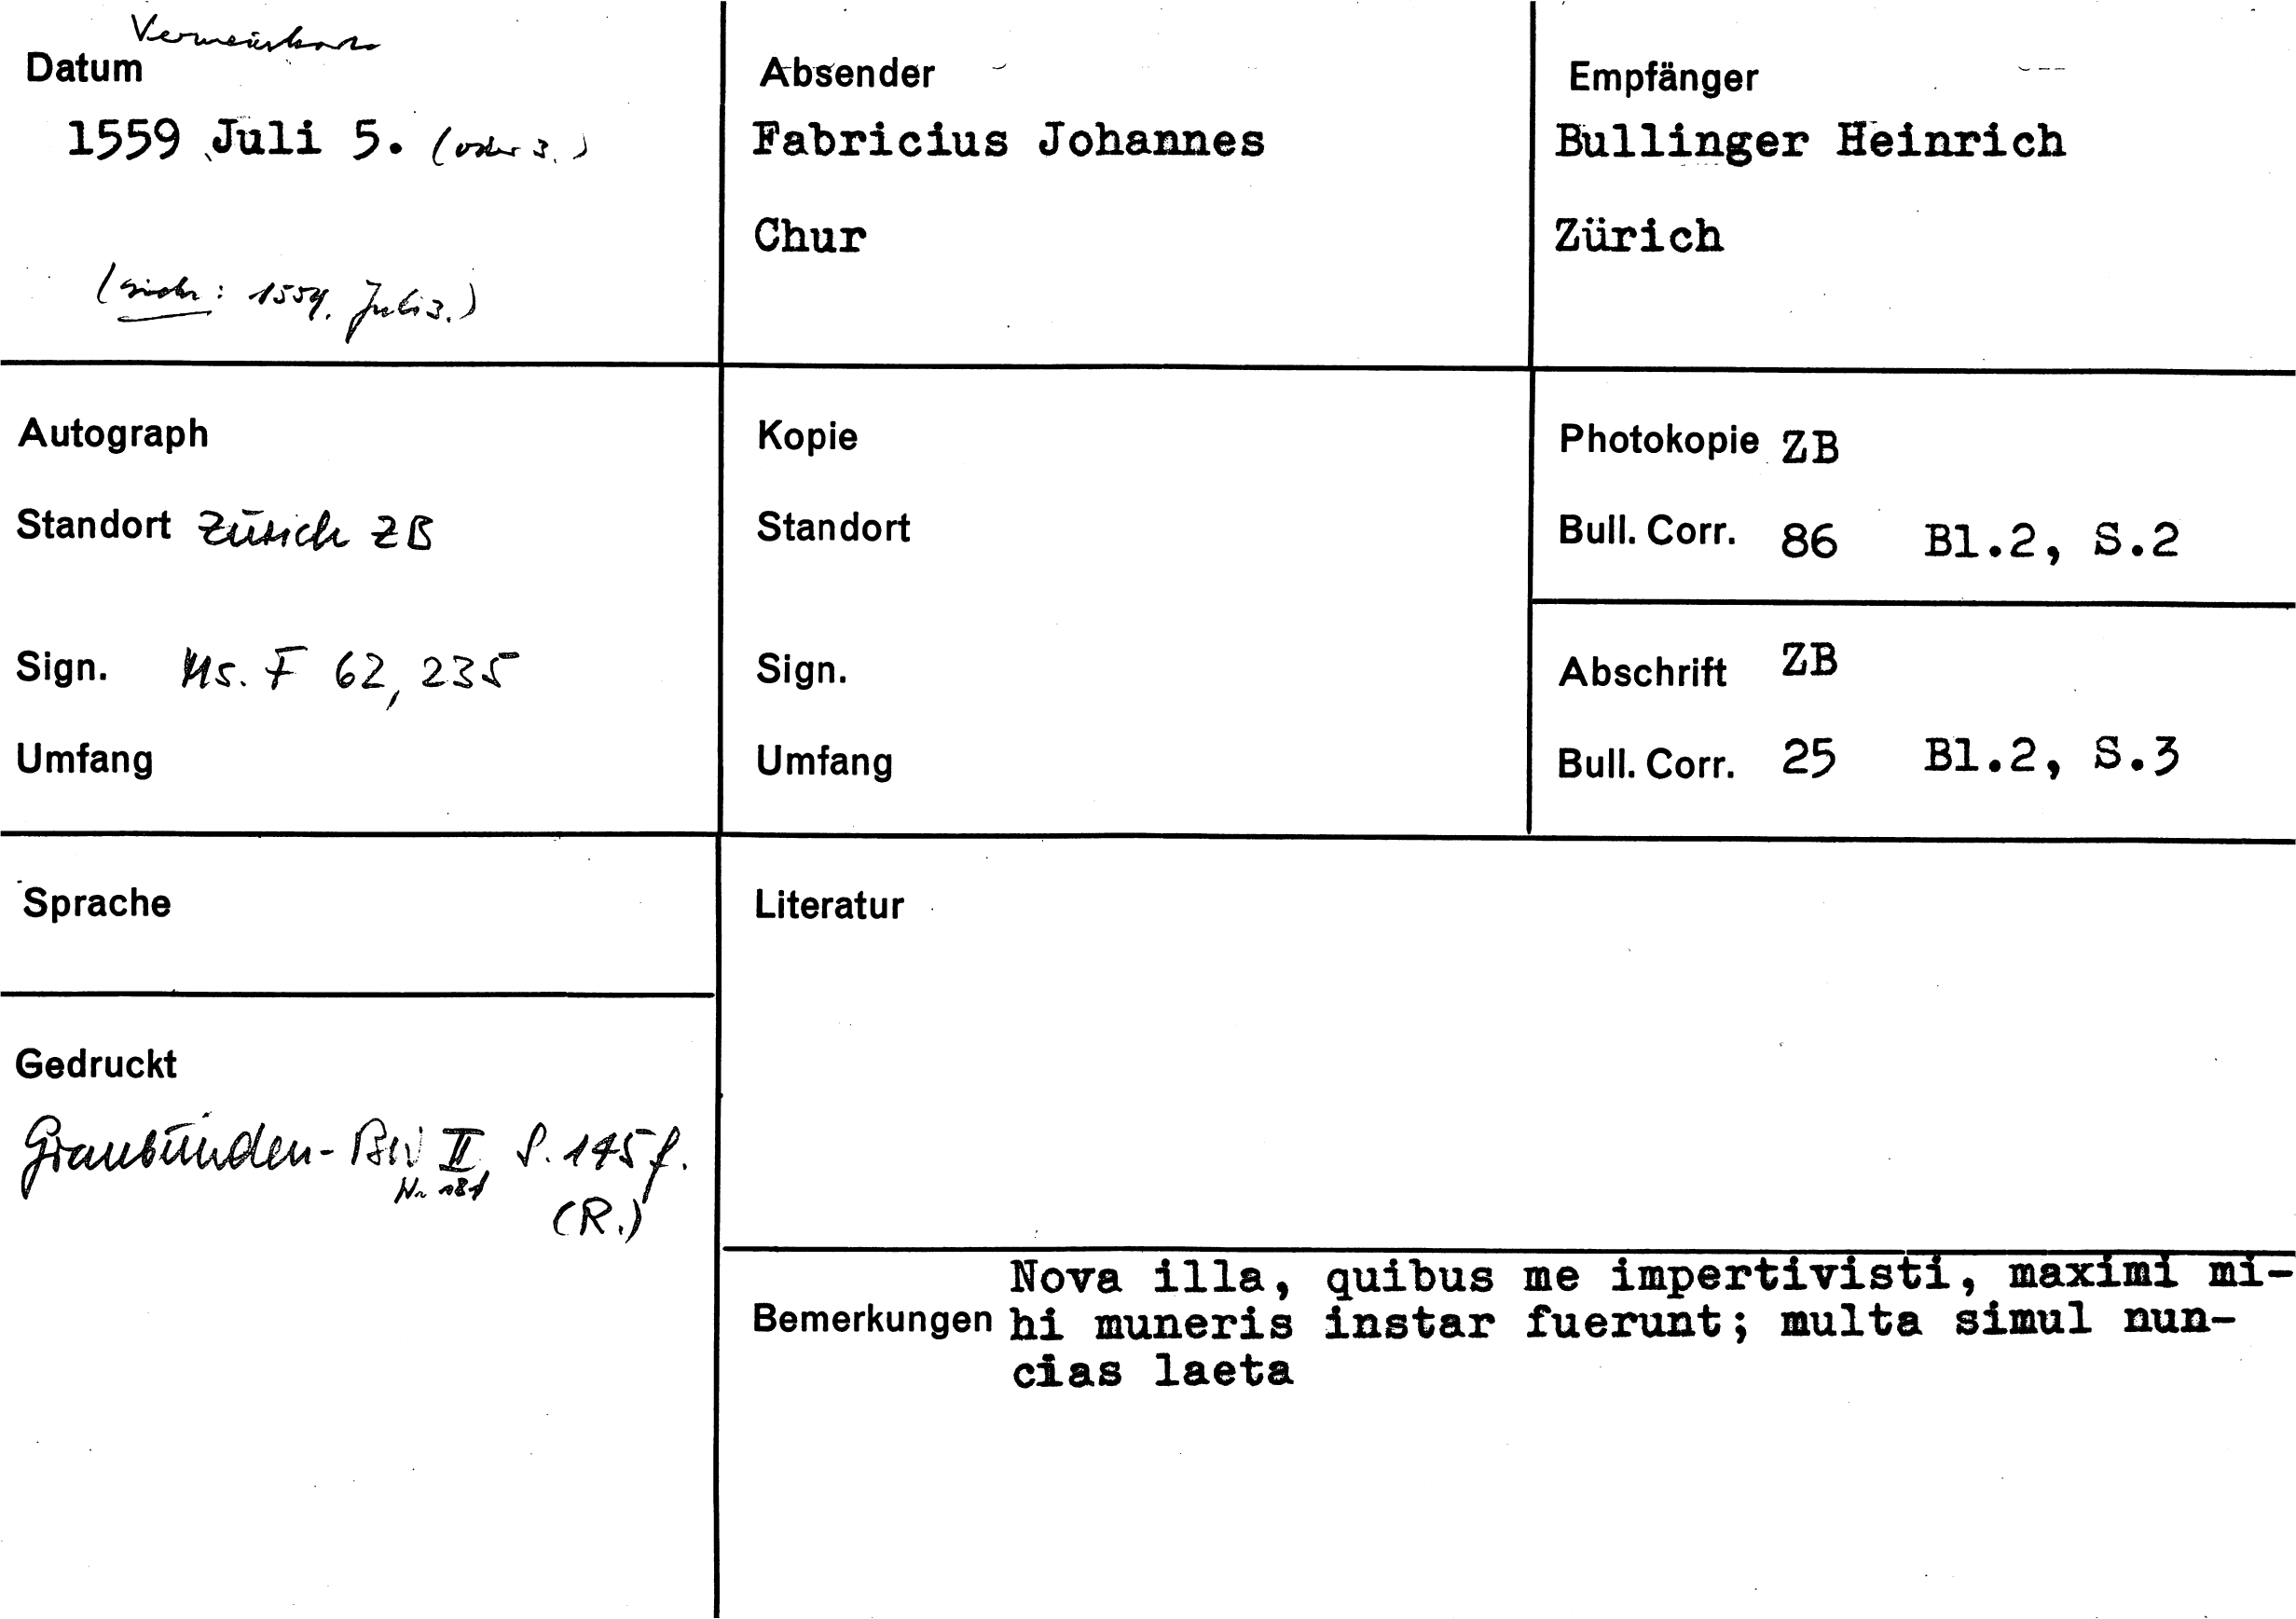 Datum
1559 Juli 5. (oder 3.)
(siehe: 1559. Juli 3.)
Absender
Fabricius Johannes
Chur
Empfänger
Bullinger Heinrich
Zürich
Autograph
Standort Zürich ZB
Sign. Ms. F 62, 235
Umfang
Kopie
Standort
Sign.
Umfang
Photokopie ZB
Bull. Corr. 86 Bl.2, S.2
Abschrift ZB
Bull. Corr. 25 Bl.2, S.3
Sprache
Gedruckt
Graubünden-BW II, S. 145 f.
Nr 181
(R.)
Literatur
Bemerkungen
Nova illa, quibus me impertivisti, maximi mi-
hi muneris instar fuerunt; multa simul nun-
cias laeta